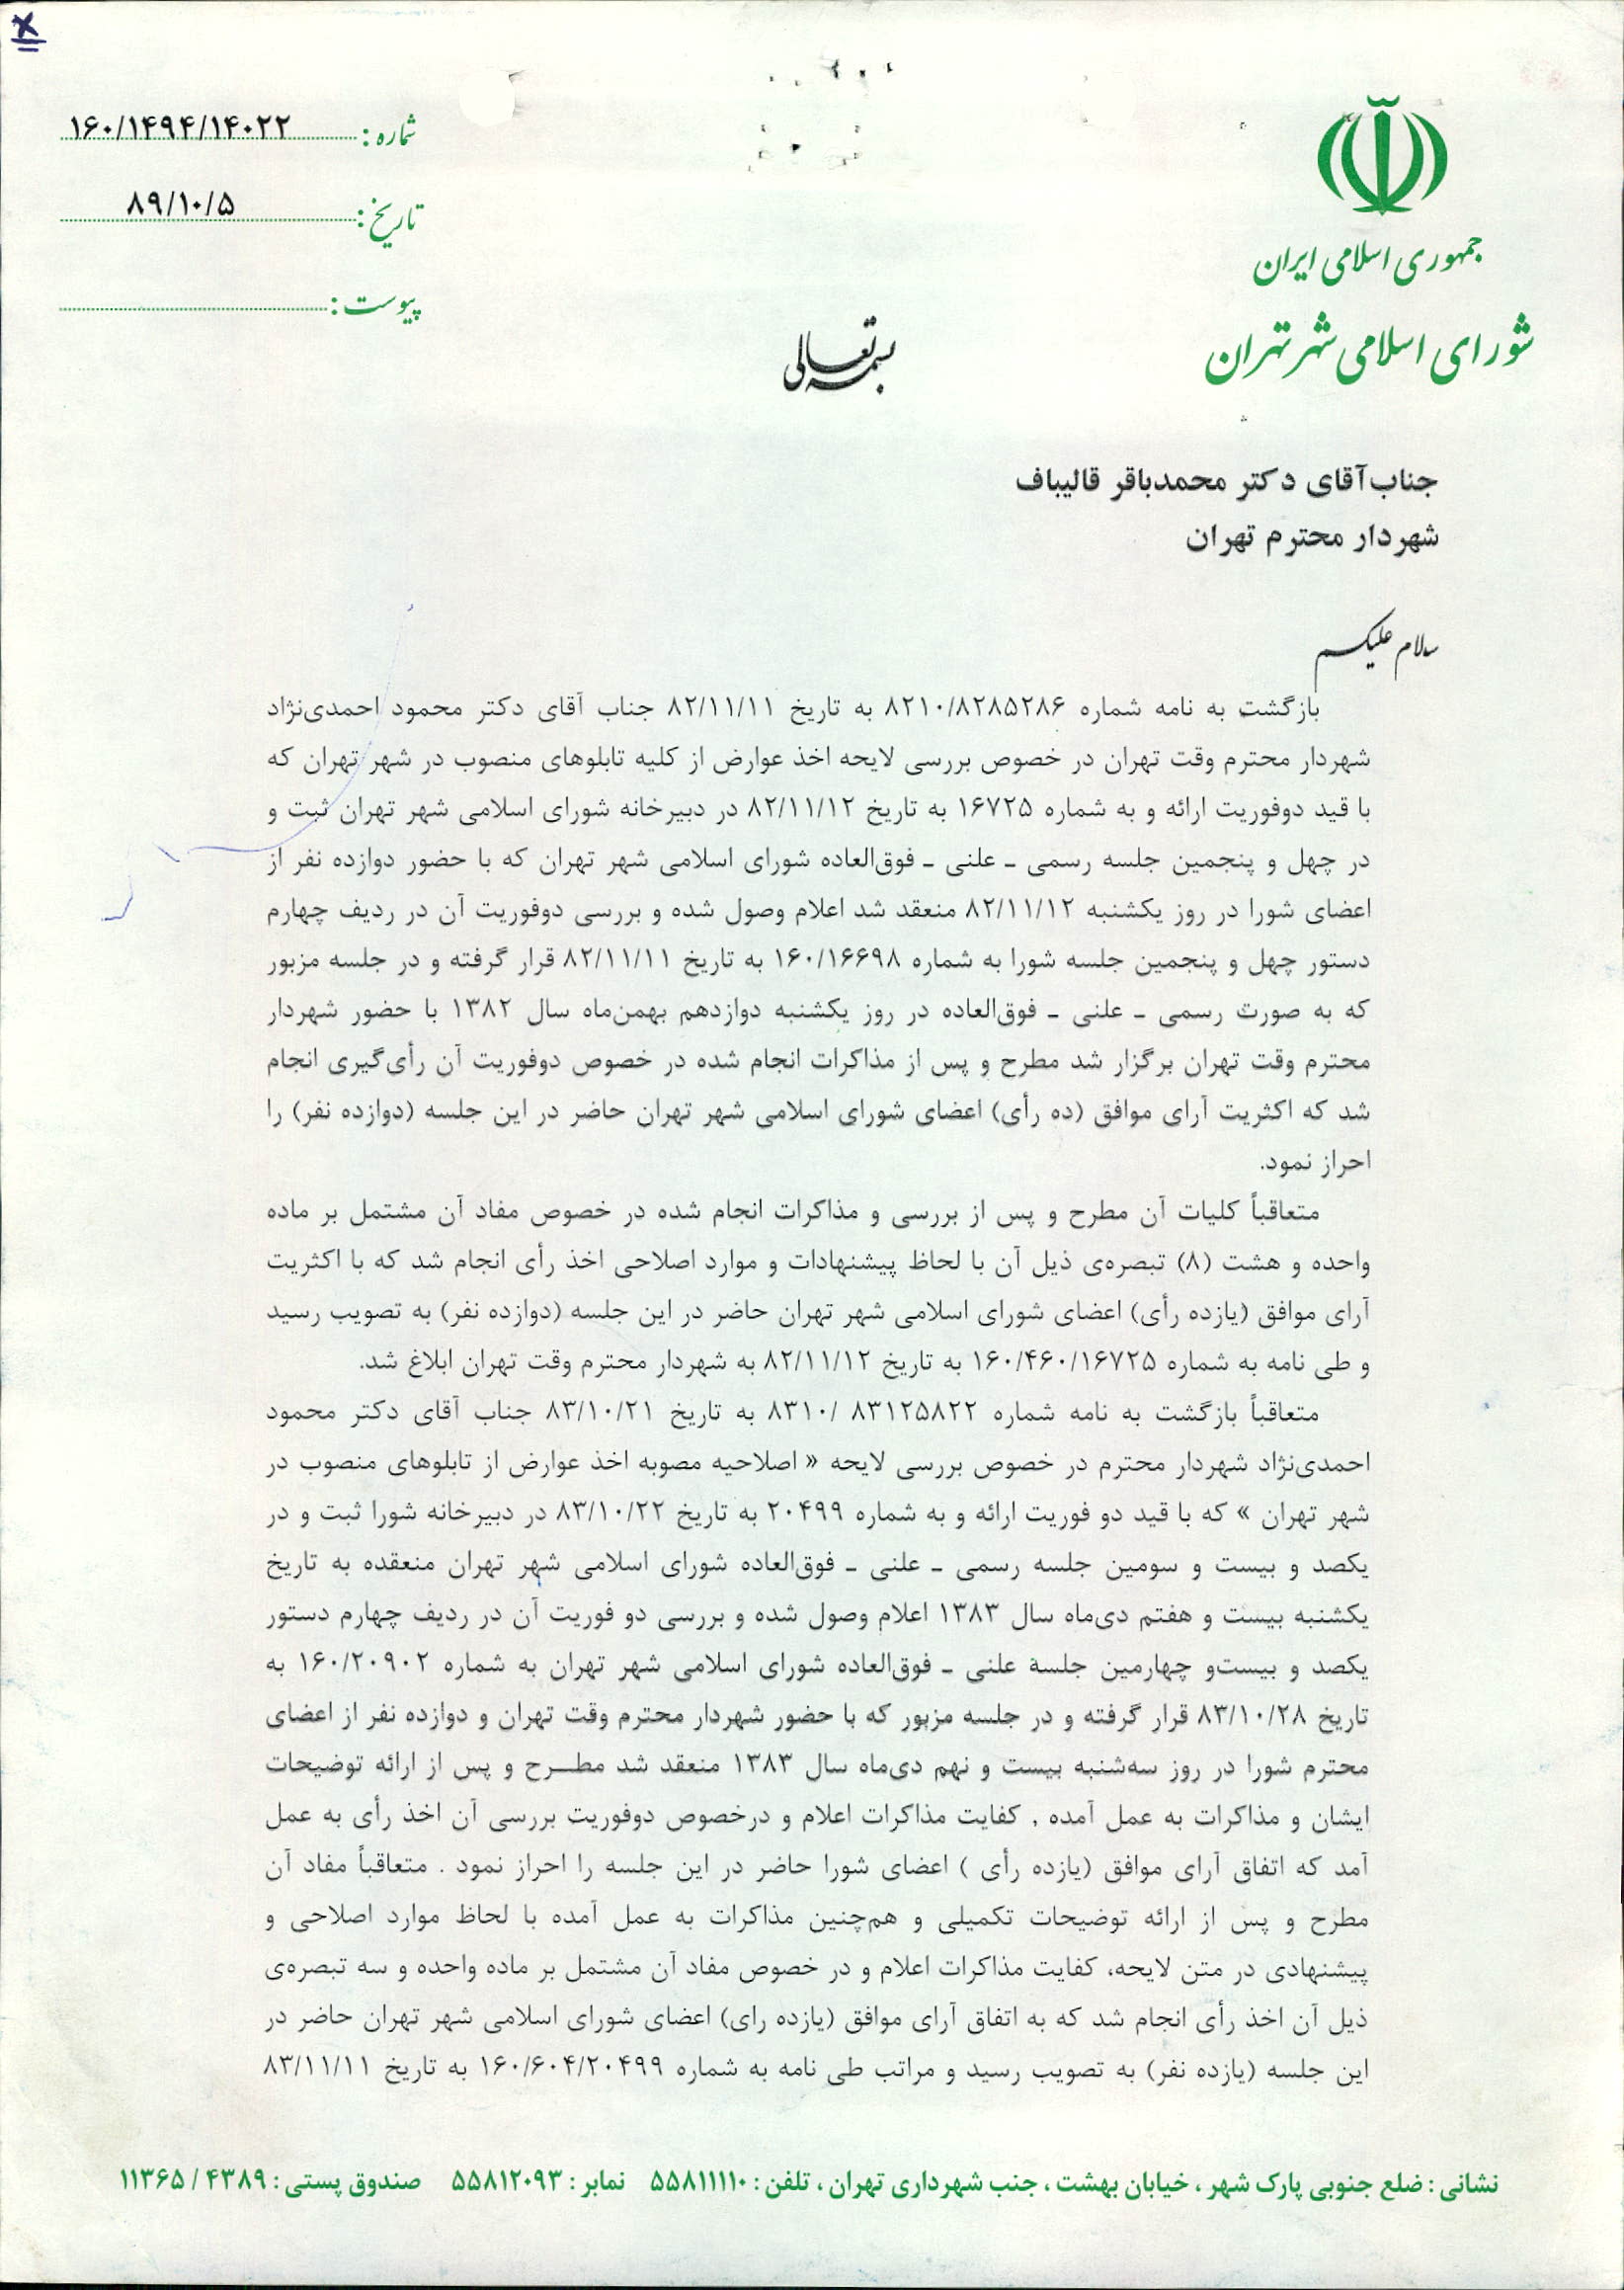 جمهوری اسلامی ایران
شورای اسلامی شهر تهران
شماره : ۱۶۰/۱۴۹۴/۱۴۰۲۲
تاریخ : ۸۹/۱۰/۵
پیوست :
بسمه تعالی
جناب‌آقای دکتر محمدباقر قالیباف
شهردار محترم تهران
سلام علیکم
بازگشت به نامه شماره ۸۲۱۰/۸۲۸۵۲۸۶ به تاریخ ۸۲/۱۱/۱۱ جناب آقای دکتر محمود احمدی‌نژاد
شهردار محترم وقت تهران در خصوص بررسی لایحه اخذ عوارض از کلیه تابلوهای منصوب در شهر تهران که
با قید دوفوریت ارائه و به شماره ۱۶۷۲۵ به تاریخ ۸۲/۱۱/۱۲ در دبیرخانه شورای اسلامی شهر تهران ثبت و
در چهل و پنجمین جلسه رسمی ـ علنی ـ فوق‌العاده شورای اسلامی شهر تهران که با حضور دوازده نفر از
اعضای شورا در روز یکشنبه ۸۲/۱۱/۱۲ منعقد شد اعلام وصول شده و بررسی دوفوریت آن در ردیف چهارم
دستور چهل و پنجمین جلسه شورا به شماره ۱۶۰/۱۶۶۹۸ به تاریخ ۸۲/۱۱/۱۱ قرار گرفته و در جلسه مزبور
که به صورت رسمی ـ علنی ـ فوق‌العاده در روز یکشنبه دوازدهم بهمن‌ماه سال ۱۳۸۲ با حضور شهردار
محترم وقت تهران برگزار شد مطرح و پس از مذاکرات انجام شده در خصوص دوفوریت آن رأی‌گیری انجام
شد که اکثریت آرای موافق (ده رأی) اعضای شورای اسلامی شهر تهران حاضر در این جلسه (دوازده نفر) را
احراز نمود.
متعاقباً کلیات آن مطرح و پس از بررسی و مذاکرات انجام شده در خصوص مفاد آن مشتمل بر ماده
واحده و هشت (۸) تبصره‌ی ذیل آن با لحاظ پیشنهادات و موارد اصلاحی اخذ رأی انجام شد که با اکثریت
آرای موافق (یازده رأی) اعضای شورای اسلامی شهر تهران حاضر در این جلسه (دوازده نفر) به تصویب رسید
و طی نامه به شماره ۱۶۰/۴۶۰/۱۶۷۲۵ به تاریخ ۸۲/۱۱/۱۲ به شهردار محترم وقت تهران ابلاغ شد.
متعاقباً بازگشت به نامه شماره ۸۳۱۲۵۸۲۲ /۸۳۱۰ به تاریخ ۸۳/۱۰/۲۱ جناب آقای دکتر محمود
احمدی‌نژاد شهردار محترم در خصوص بررسی لایحه « اصلاحیه مصوبه اخذ عوارض از تابلوهای منصوب در
شهر تهران » که با قید دو فوریت ارائه و به شماره ۲۰۴۹۹ به تاریخ ۸۳/۱۰/۲۲ در دبیرخانه شورا ثبت و در
یکصد و بیست و سومین جلسه رسمی ـ علنی ـ فوق‌العاده شورای اسلامی شهر تهران منعقده به تاریخ
یکشنبه بیست و هفتم دی‌ماه سال ۱۳۸۳ اعلام وصول شده و بررسی دو فوریت آن در ردیف چهارم دستور
یکصد و بیست‌و چهارمین جلسة علنی ـ فوق‌العاده شورای اسلامی شهر تهران به شماره ۱۶۰/۲۰۹۰۲ به
تاریخ ۸۳/۱۰/۲۸ قرار گرفته و در جلسه مزبور که با حضور شهردار محترم وقت تهران و دوازده نفر از اعضای
محترم شورا در روز سه‌شنبه بیست و نهم دی‌ماه سال ۱۳۸۳ منعقد شد مطـــرح و پس از ارائه توضیحات
ایشان و مذاکرات به عمل آمده , کفایت مذاکرات اعلام و درخصوص دوفوریت بررسی آن اخذ رأی به عمل
آمد که اتفاق آرای موافق (یازده رأی ) اعضای شورا حاضر در این جلسه را احراز نمود . متعاقباً مفاد آن
مطرح و پس از ارائه توضیحات تکمیلی و هم‌چنین مذاکرات به عمل آمده با لحاظ موارد اصلاحی و
پیشنهادی در متن لایحه، کفایت مذاکرات اعلام و در خصوص مفاد آن مشتمل بر ماده واحده و سه تبصره‌ی
ذیل آن اخذ رأی انجام شد که به اتفاق آرای موافق (یازده رای) اعضای شورای اسلامی شهر تهران حاضر در
این جلسه (یازده نفر) به تصویب رسید و مراتب طی نامه به شماره ۱۶۰/۶۰۴/۲۰۴۹۹ به تاریخ ۸۳/۱۱/۱۱
نشانی : ضلع جنوبی پارک شهر ، خیابان بهشت ، جنب شهرداری تهران ، تلفن : ۵۵۸۱۱۱۱۰ نمابر : ۵۵۸۱۲۰۹۳ صندوق پستی : ۴۳۸۹ / ۱۱۳۶۵